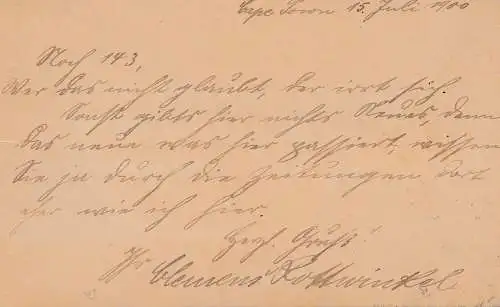 Cape Town 15. Juli 1900
Noch 143,
Wer das nicht glaubt, der irrt sich.
Sonst gibts hier nichts Neues, denn
das neue was hier passiert, wissen
Sie ja durch die Zeitungen dort
eher wie ich hier.
Herzl. Gruss!
Ihr Clemens Rottwinkel